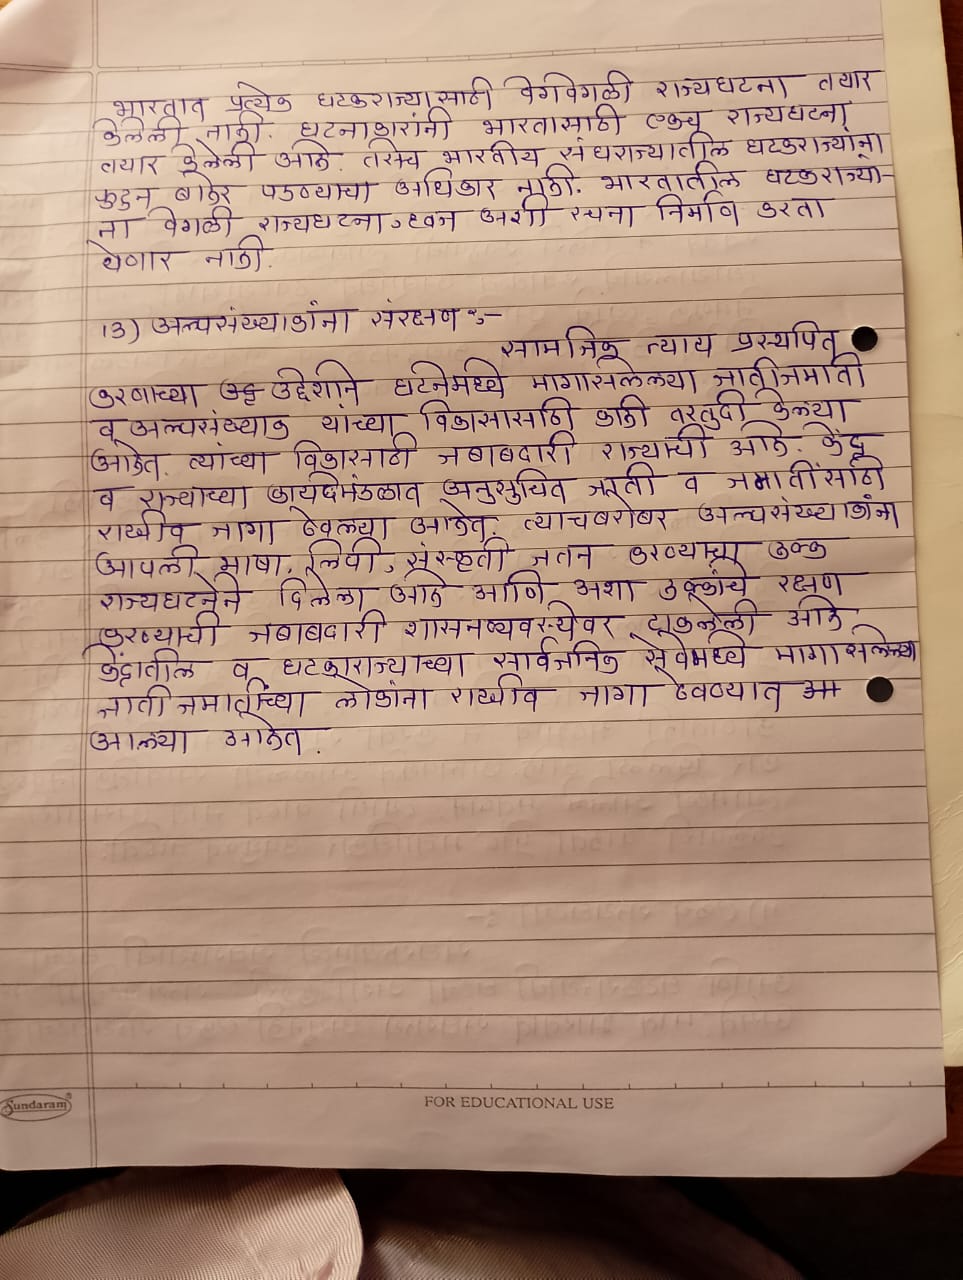 भारतात प्रत्येक घटकराज्यासाठी वेगवेगळी राज्यघटना तयार
केलेली नाही. घटनाकारांनी भारतासाठी एकच राज्यघटना
तयार केलेली आहे. तसेच भारतीय संघराज्यातील घटकराज्यांना
फुटून बाहेर पडण्याचा अधिकार नाही. भारतातील घटकराज्यां-
ना वेगळी राज्यघटना, ध्वज अशी रचना निर्माण करता
येणार नाही.
13) अल्पसंख्याकांना संरक्षण :-
सामाजिक न्याय प्रस्थापित
करणाच्या उद्देशाने घटनेमध्ये मागासलेल्या जातीजमाती
व अल्पसंख्याक यांच्या विकासासाठी काही तरतुदी केल्या
आहेत. त्यांच्या विकासाठी जबाबदारी राज्यांची आहे. केंद्र
व राज्याच्या कायदेमंडळात अनुसुचित जाती व जमातींसाठी
राखीव जागा ठेवल्या आहेत. त्याचबरोबर अल्पसंख्याकांना
आपली भाषा, लिपी, संस्कृती जतन करण्याचा हक्क
राज्यघटनेने दिलेला आहे आणि अशा हक्कांचे रक्षण
करण्याची जबाबदारी शासनव्यवस्थेवर टाकलेली आहे
केंद्रातील व घटकराज्याच्या सार्वजनिक सेवेमध्ये मागासलेल्या
जाती जमातींच्या लोकांना राखीव जागा ठेवण्यात
आल्या आहेत.
Sundaram
FOR EDUCATIONAL USE